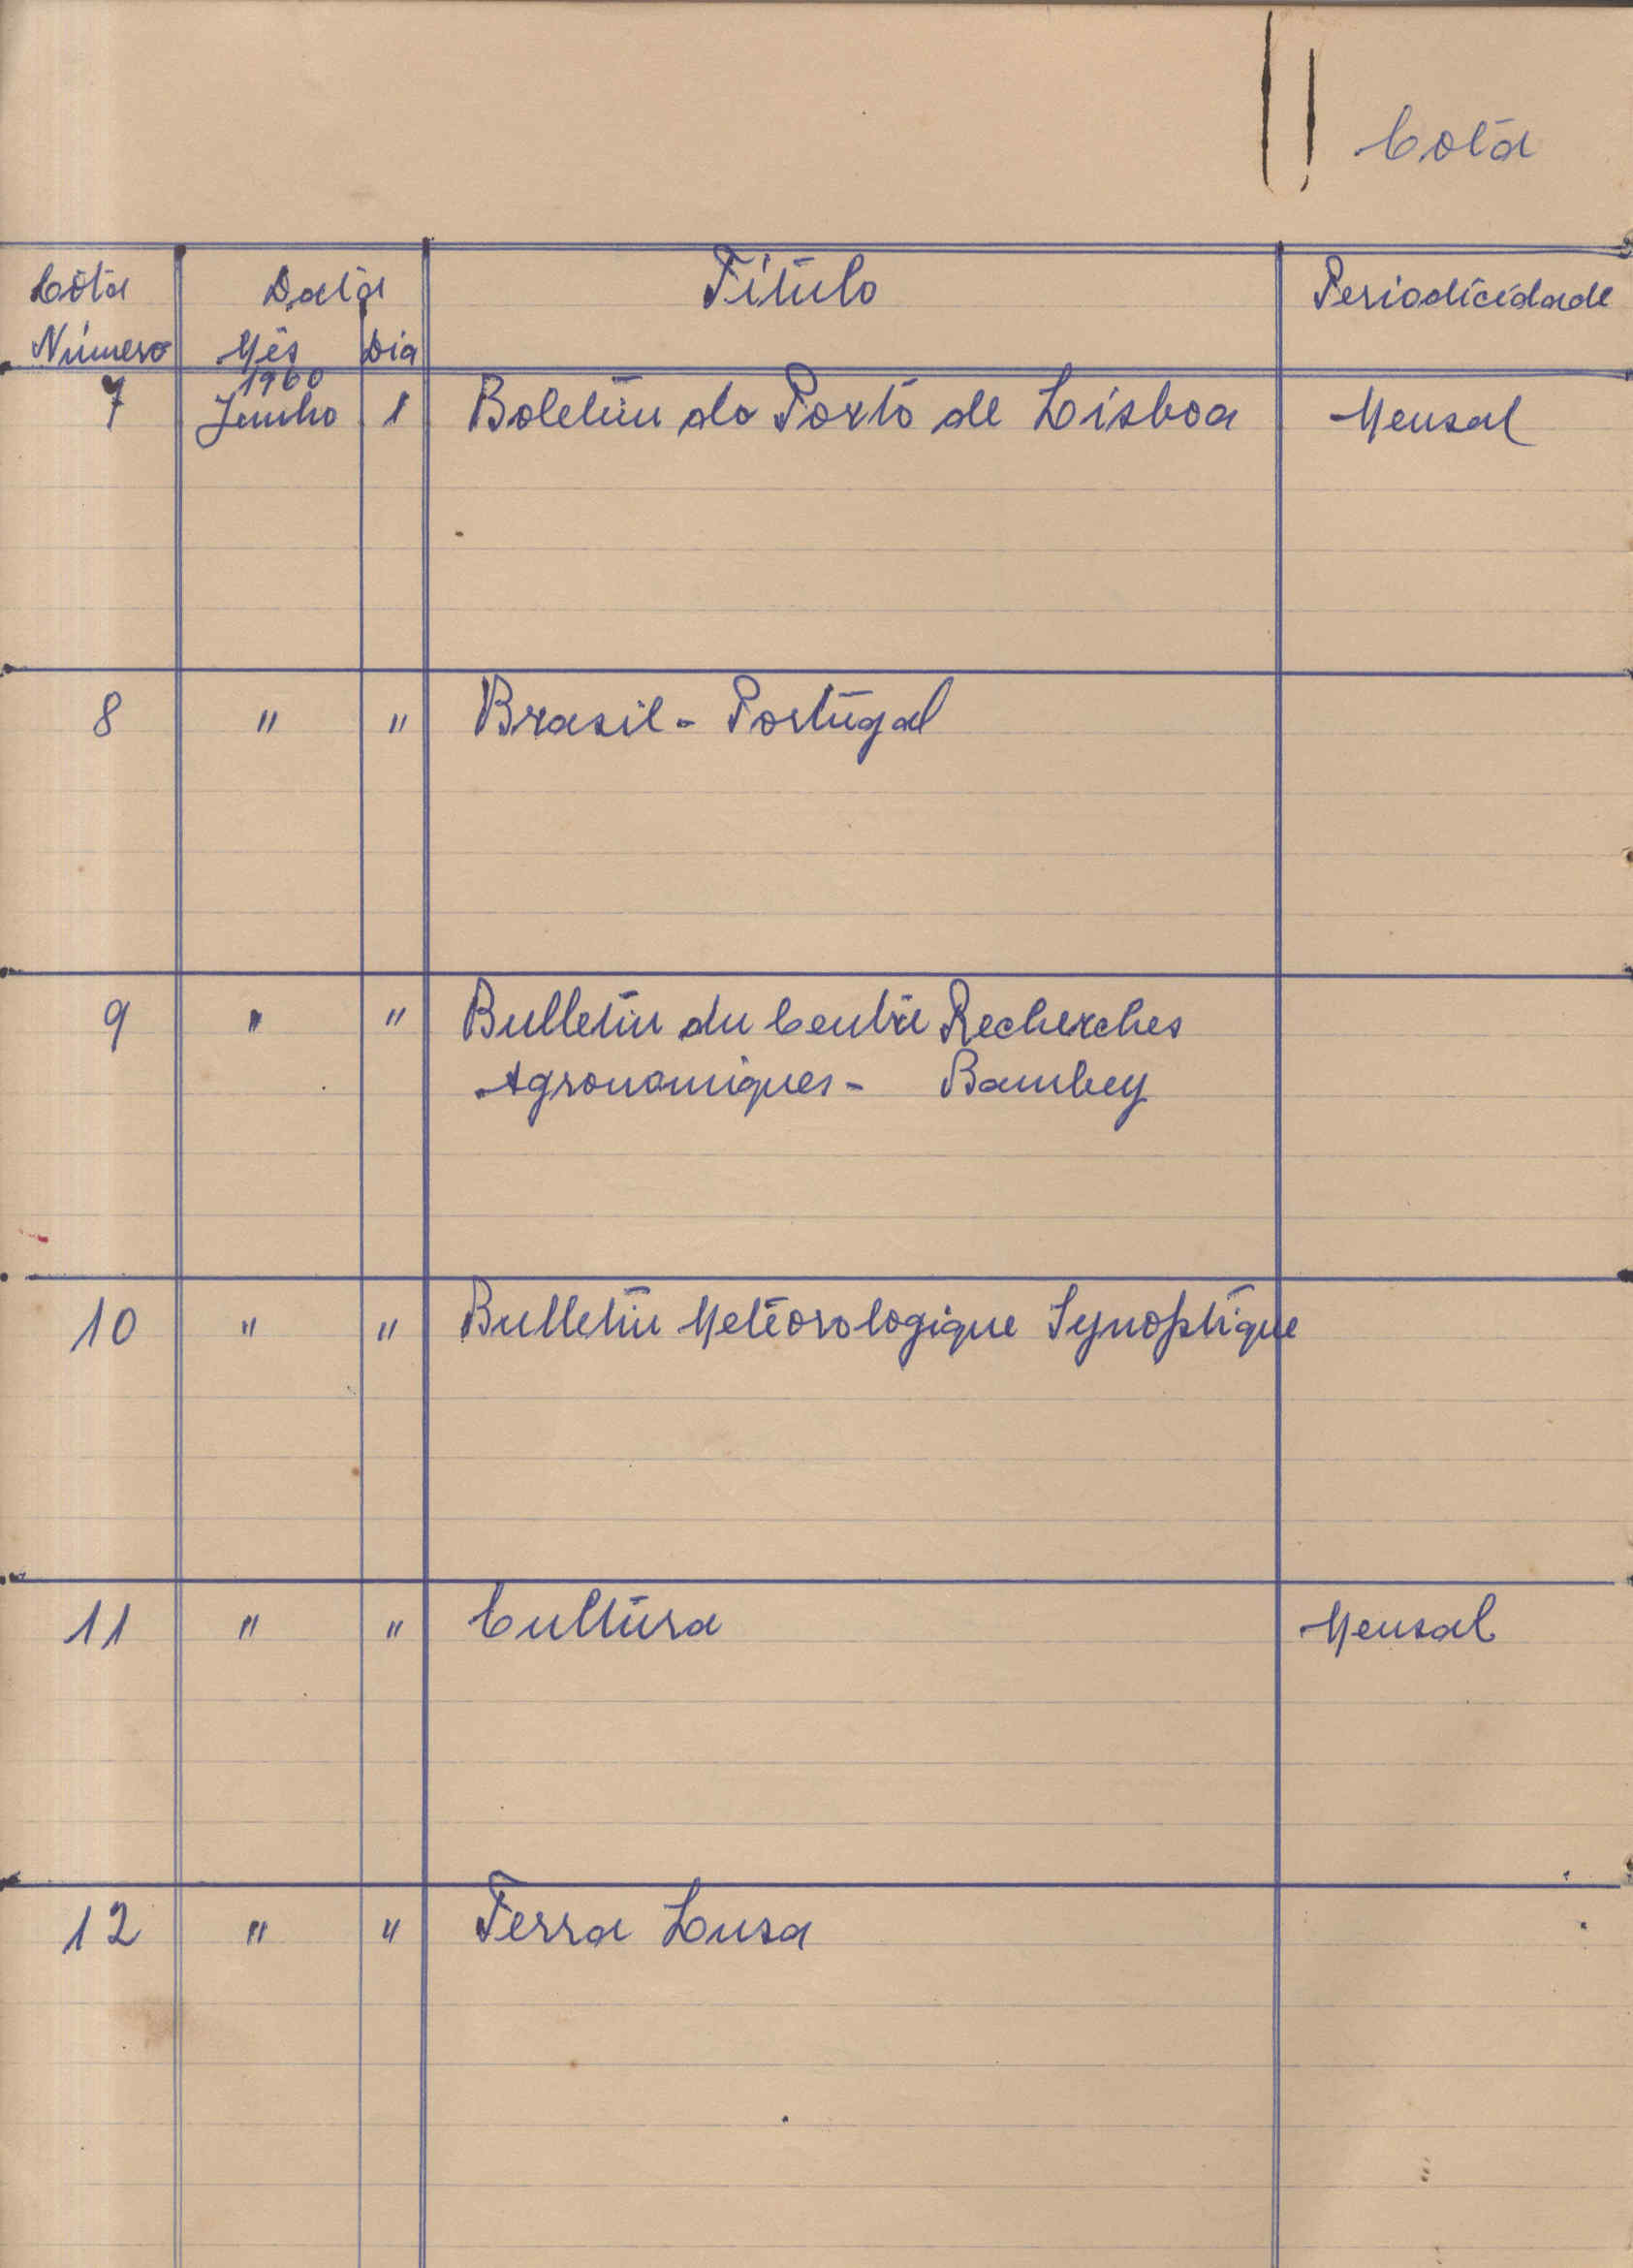 Cota
Cota Data Título Periodicidade
Número Mês Dia
1960
7 Junho 1 Boletim do Porto de Lisboa Mensal
8 " " Brasil - Portugal
9 " " Bulletin du Centre Recherches
Agronomiques - Bambey
10 " " Bulletin Metéorologique Synoptique
11 " " Cultura Mensal
12 " " Terra Lusa